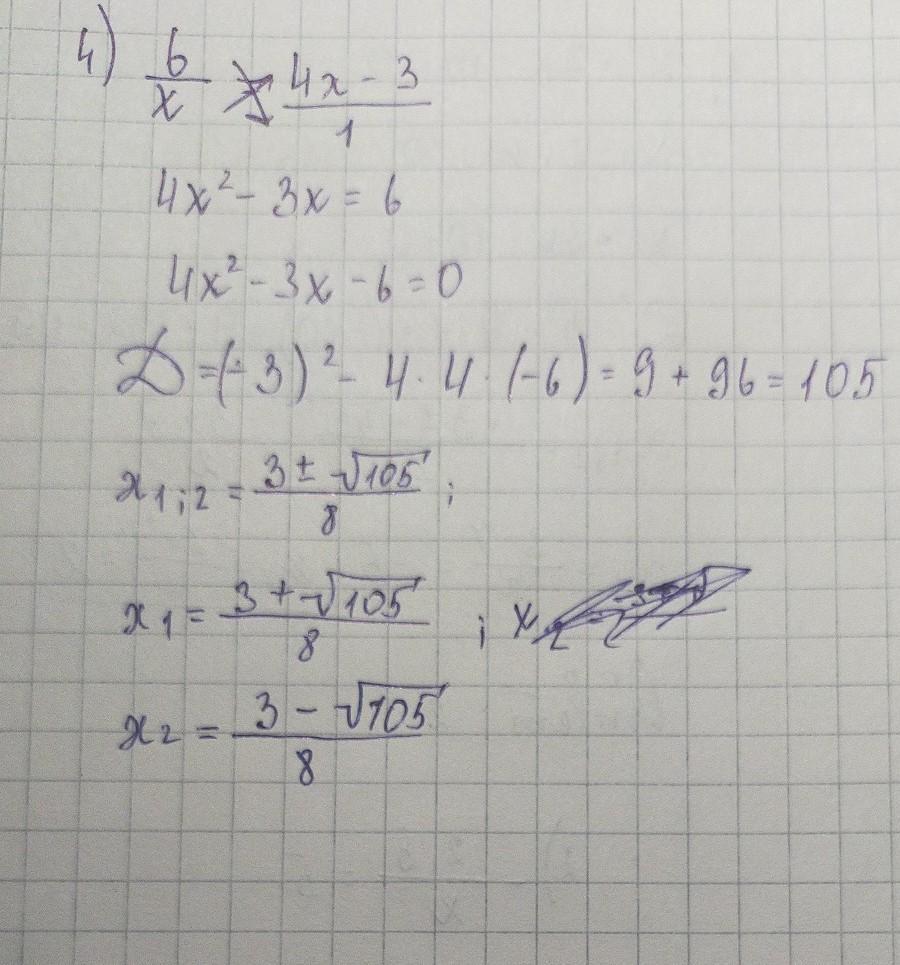 4) 6/x = (4x - 3)/1
4x² - 3x = 6
4x² - 3x - 6 = 0
D = (-3)² - 4 · 4 · (-6) = 9 + 96 = 105
x1;2 = (3 ± √105)/8 ;
x1 = (3 + √105)/8 ; x
x2 = (3 - √105)/8